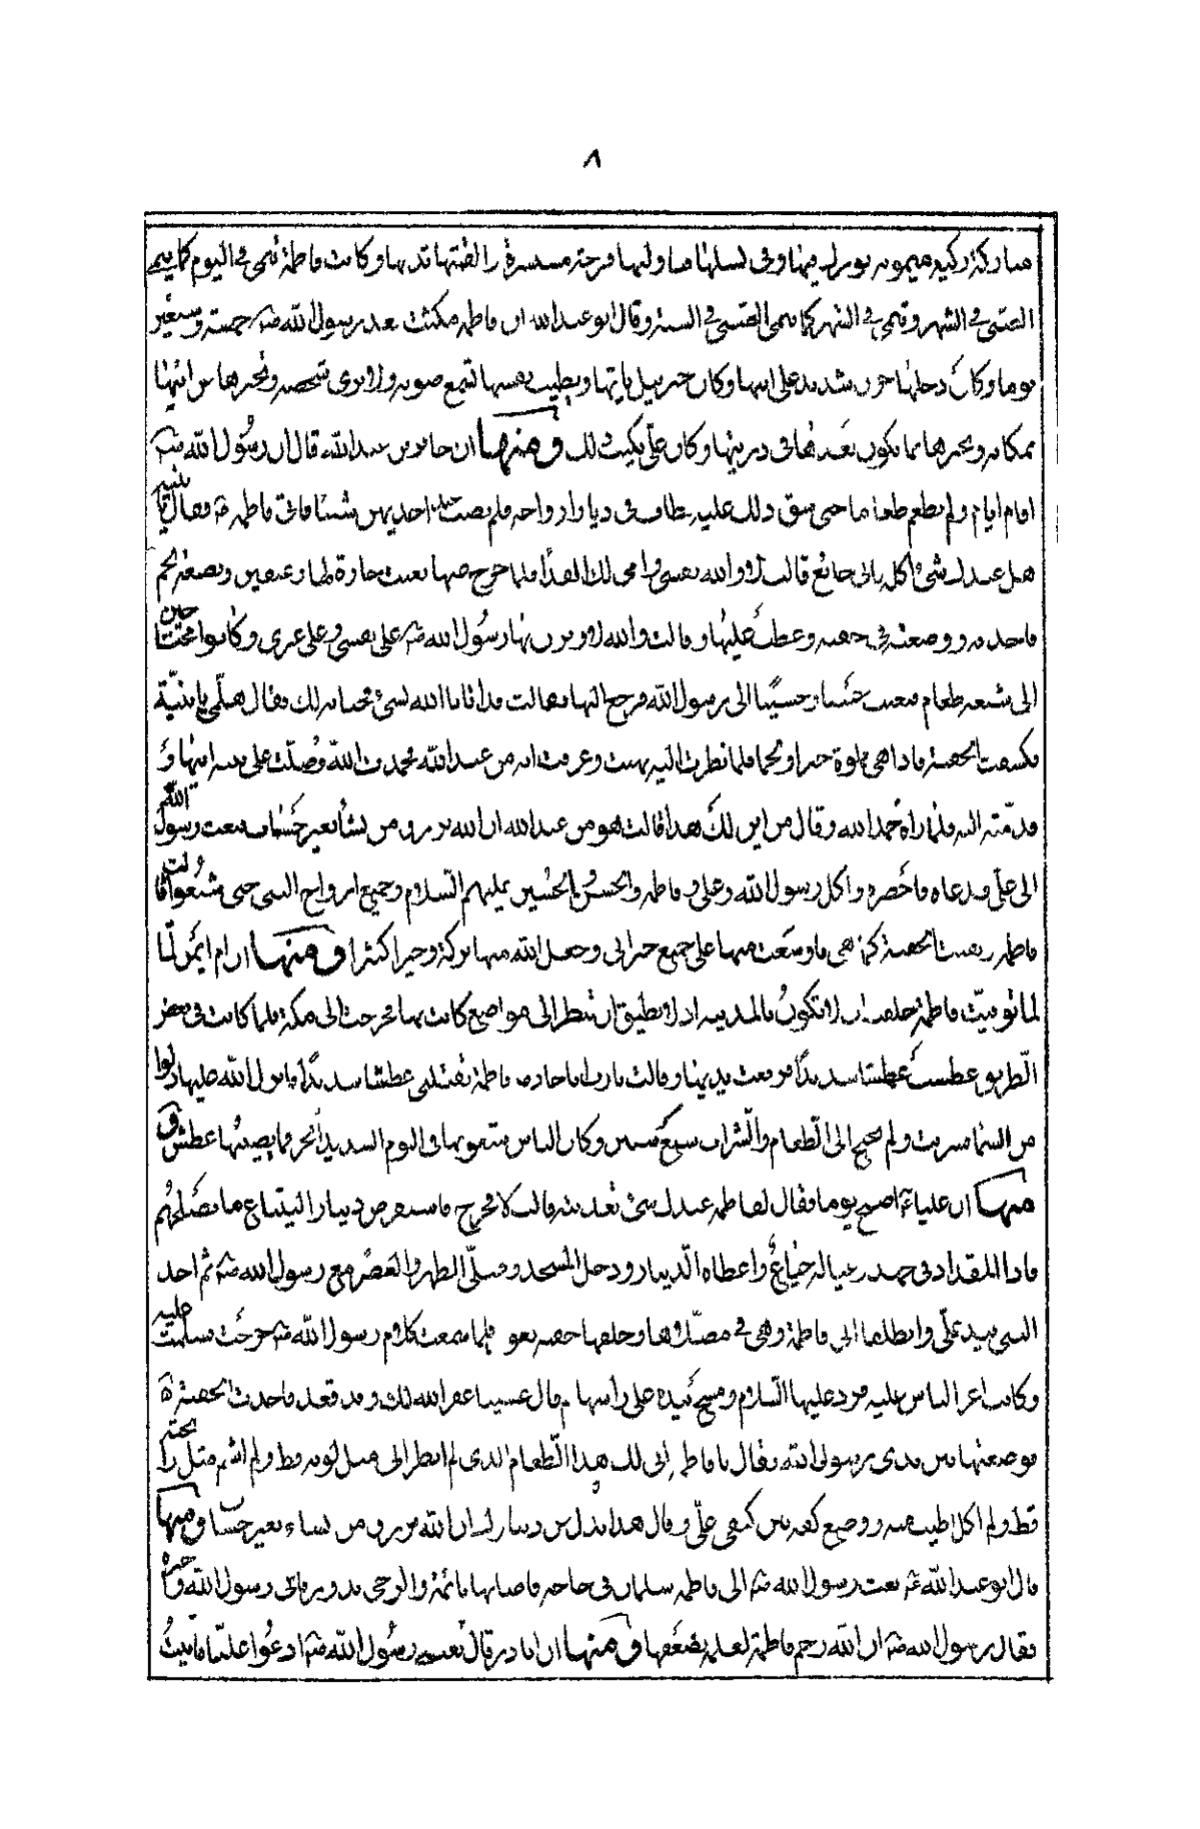 ٨
مباركة زكية ميمونة بورك فيها وفى نسلها فتناولتها فرحة مستبشرة فالقمتها ثديها وكانت فاطمة تنمى فى اليوم كما ينمى
الصبى فى الشهر وتنمى فى الشهر كما ينمى الصبى فى السنة وقال ابو عبد الله ان فاطمة مكثت بعد رسول الله ص خمسة وسبعين
يوما وكان دخلها حزن شديد على ابيها وكان جبرئيل ياتيها ويطيب نفسها تسمع صوته ولا ترى شخصه ويخبرها عن ابيها
بمكانه ويخبرها بما يكون بعدها فى ذريتها وكان على يكتب ذلك ومنها ان جابر بن عبد الله قال ان رسول الله ص
اقام ايام ولم يطعم طعاما حتى شق ذلك عليه فطاف فى ديار ازواجه فلم يصب عند احديهن شيئا فاتى فاطمة ع فقال يا بنية
هل عندك شئ اكل فانى جائع قالت لا والله بنفسى وامى لك الفدا فلما خرج عنها بعثت جارة لها رغيفين وبضعة لحم
فاخذته ووضعته فى جفنة وغطت عليها وقالت والله لاوثرن بها رسول الله ص على نفسى وعلى غيرى وكانوا محتاجين
الى شبعة طعام فبعثت حسنا وحسينا الى رسول الله فرجع اليها فقالت قد اتانا الله بشئ فخباته لك فقال هلمى يا بنية
فكشفت الجفنة فاذا هى مملوة خبزا ولحما فلما نظرت اليه بهتت وعرفت انه من عند الله فحمدت الله وصلت على نبيه ابيها و
قدمته اليه فلما راه حمد الله وقال من اين لك هذا قالت هو من عند الله ان الله يرزق من يشاء بغير حساب فبعث رسول الله
الى على ودعاه فاحضره واكل رسول الله وعلى وفاطمة والحسن والحسين عليهم السلام وجميع ازواج النبى حتى شبعوا قالت
فاطمة وبقيت الجفنة كما هى فاوسعت منها على جميع جيرانى وجعل الله فيها بركة وخيرا كثيرا ومنها ان ام ايمن لما
لما توفيت فاطمة حلفت ان لا تكون بالمدينة اذ لا تطيق ان تنظر الى مواضع كانت بها فخرجت الى مكة فلما كانت فى بعض
الطريق عطشت عطشا شديدا فرفعت يديها وقالت يا رب انا خادمة فاطمة تقتلنى عطشا شديدا فانزل الله عليها دلوا
من السما فشربت ولم تحتج الى الطعام والشراب سبع سنين وكان الناس يبعثونها فى اليوم الشديد الحر فما يصيبها عطش و
منها ان عليا ع اصبح يوما فقال لفاطمة عندك شئ تغدينيه قالت لا فخرج فاستقرض دينارا ليبتاع ما يصلحهم
فاذا المقداد فى جهد وعياله جياع واعطاه الدينار ودخل المسجد وصلى الظهر والعصر مع رسول الله ص ثم اخذ
النبى بيد على وانطلقا الى فاطمة وهى فى مصلاها وخلفها جفنة تفور فلما سمعت كلام رسول الله ص خرجت سلمت عليه
وكانت اعز الناس عليه فرد عليها السلام ومسح بيده على راسها ثم قال عشينا غفر الله لك وقد فعل فاخذت الجفنة
فوضعتها بين يدى رسول الله فقال يا فاطمة انى لك هذا الطعام الذى لم انظر الى مثل لونه قط ولم اشم مثل رائحته
قط ولم اكل اطيب منه ووضع كفه بين كتفى على وقال هذا بدل من دينارك ان الله يرزق من يشاء بغير حساب ومنها
قال ابو عبد الله ع بعث رسول الله ص الى فاطمة سلمان فى حاجة فاصابها نائمة والرحى تدور فاتى رسول الله واخبره
فقال رسول الله ص ان الله رحم فاطمة لعلمه بضعفها ومنها ان اباذر قال بعثنى رسول الله ص ادعوا عليا فاتيت